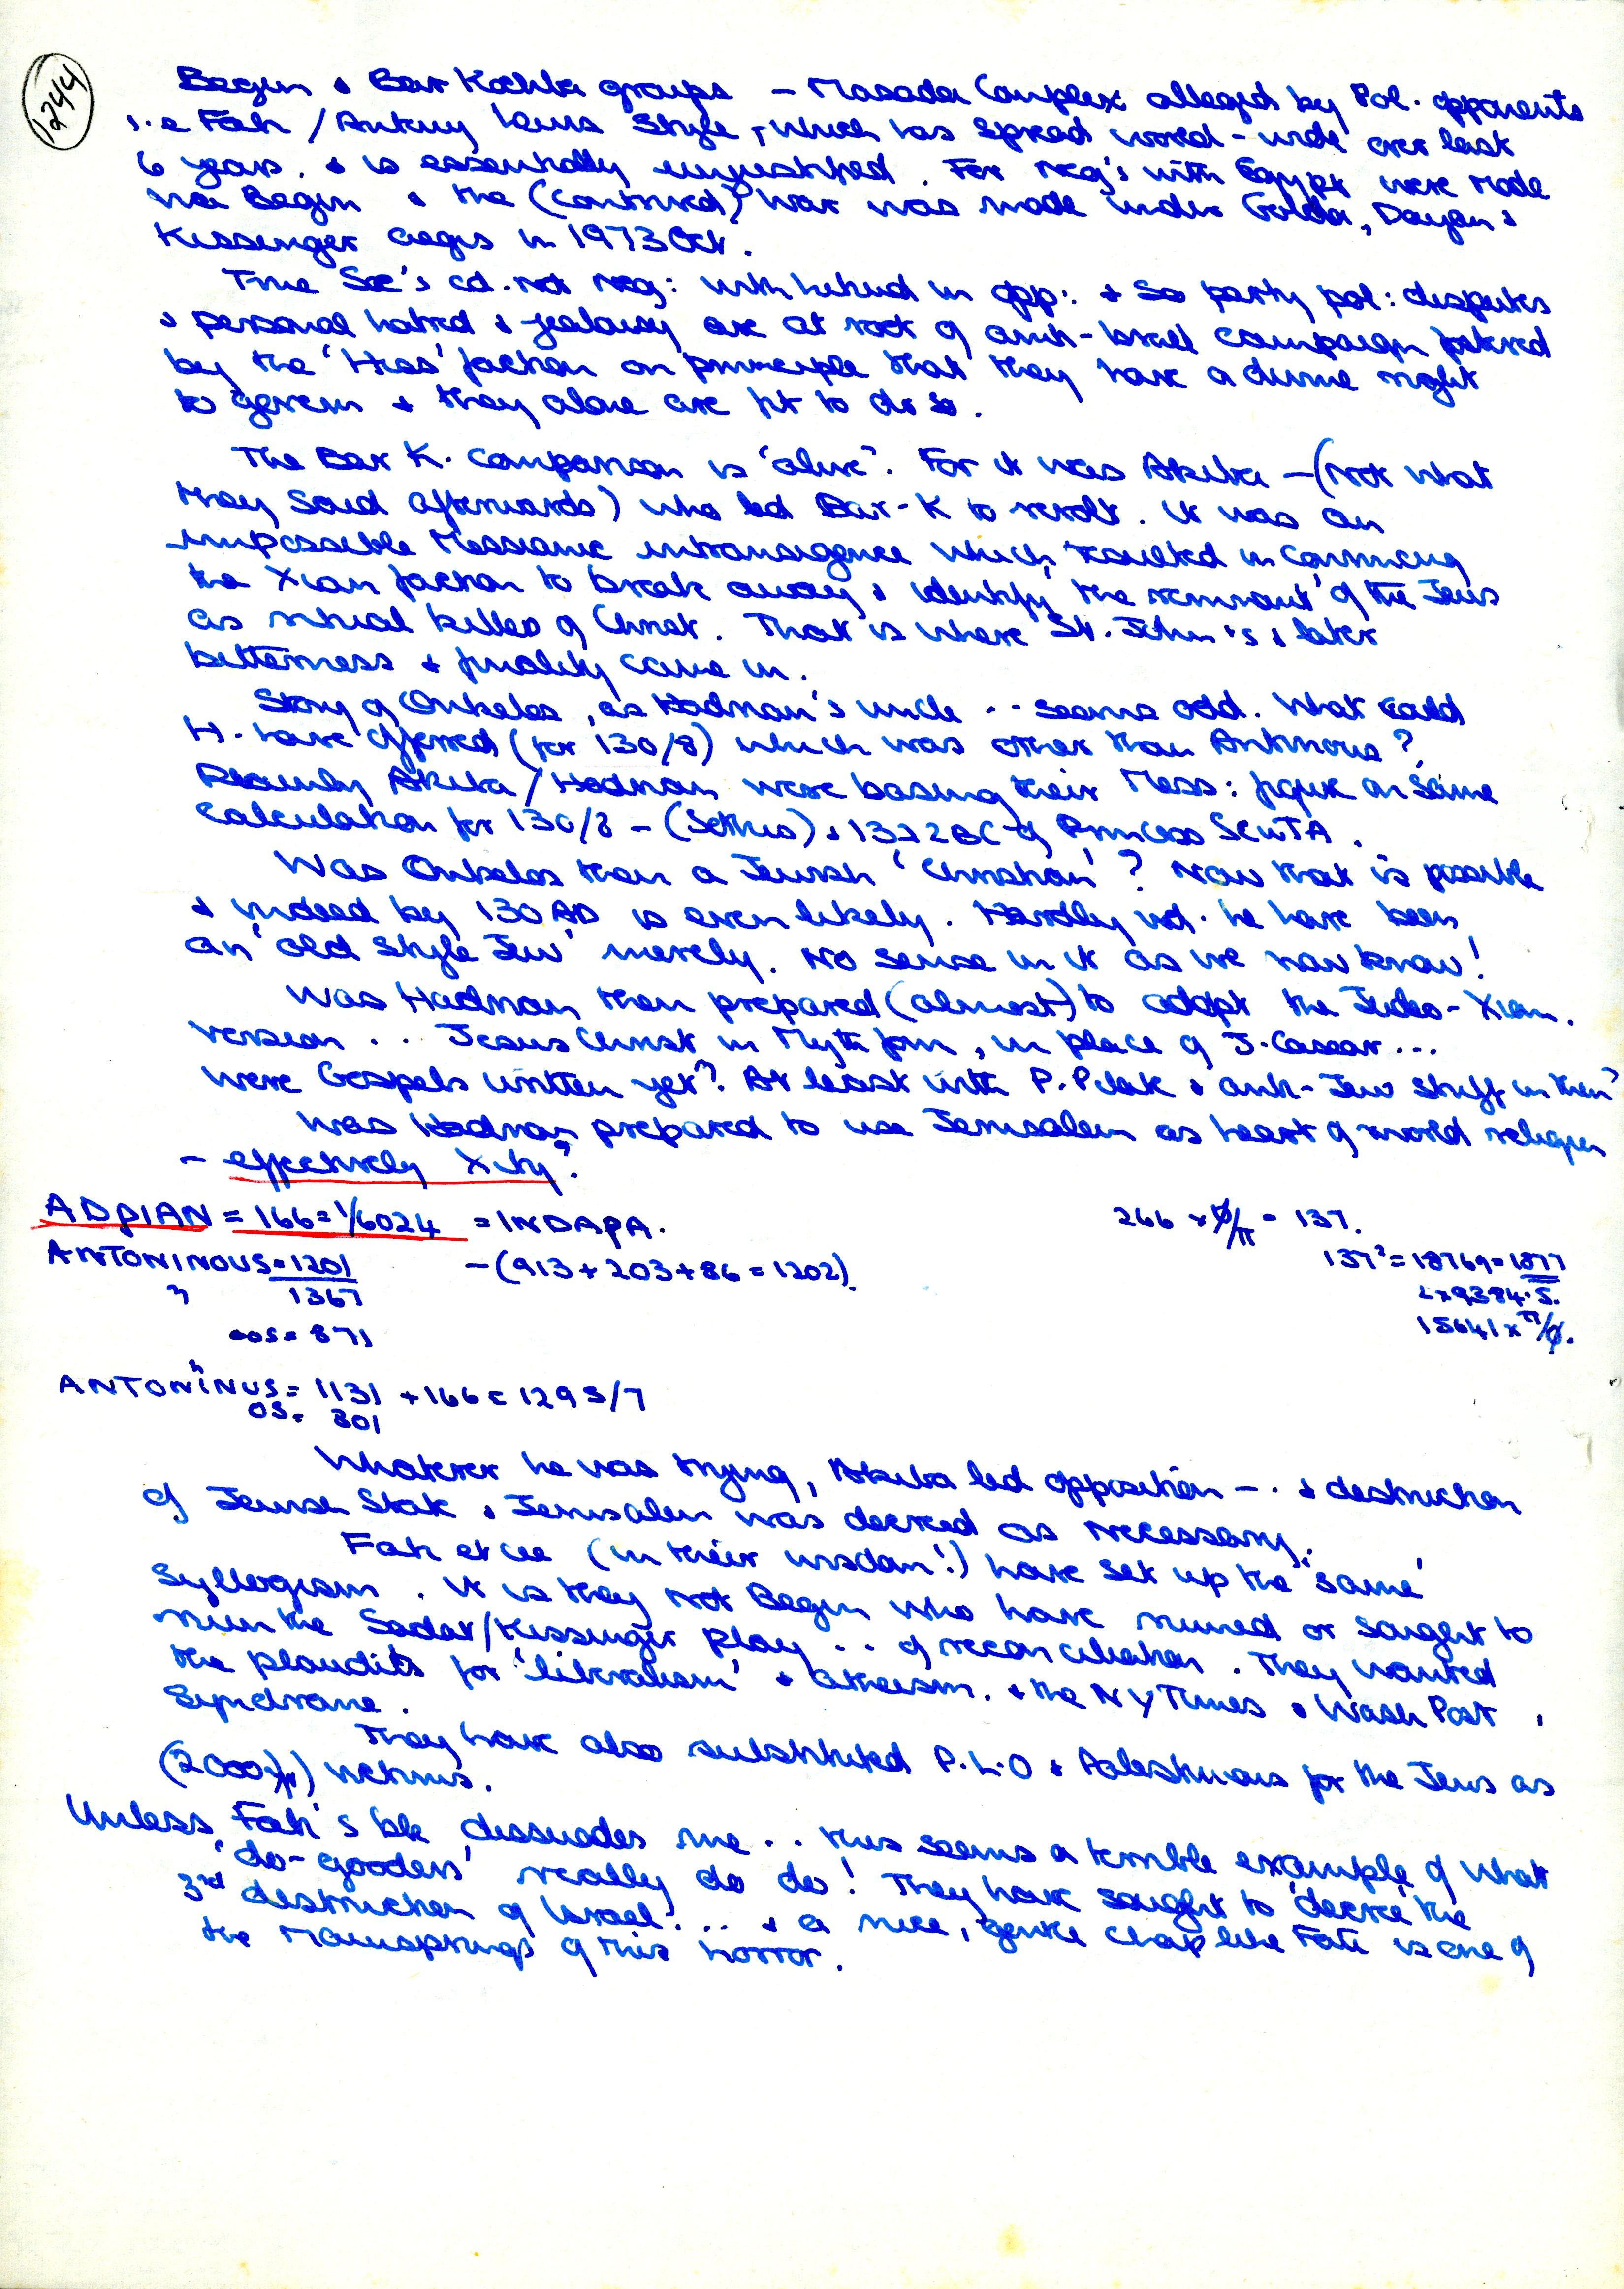 1244
Begin & Bar Kochba groups – Masada Complex alleged by Pol. opponents
i.e Fah / Antony Lewis Style, which has spread world-wide over last
6 years. & is essentially unjustified. For Neg's with Egypt were made
via Begin & the (contrived) war was made under Golda, Dayan &
Kissinger aegis in 1973 Oct.
True Soc's cd. not neg: with Likud in opp: & so party pol: disputes
& personal hatred & jealousy are at root of anti-Israel campaign
by the 'Hias' faction on principle that they have a divine right
to govern & they alone are fit to do so.
The Bar K. comparison is 'alive'. For it was Akiba – (not what
they said afterwards) who led Bar-K to revolt. It was an
impossible Messianic intransigence which resulted in convincing
the Xian faction to break away & identify 'the remnant' of the Jews
as ritual killers of Christ. That is where St. John's & later
bitterness & finality came in.
Story of Onkelos, as Hadrian's uncle .. seems odd. What could
H. have offered (for 130/8) which was other than Antinous?
Akiba / Hadrian were basing their Mess: figure on same
calculation for 130/8 – (Sethis) & 1322BC of Princess SCUTA.
Was Onkelos then a Jewish 'Christian'? Now that is possible
& indeed by 130 AD is even likely. Hardly wd. he have been
an 'old style Jew' merely. No sense in it as we now know!
Was Hadrian then prepared (almost) to adopt the Judeo-Xian.
version . . Jesus Christ in Myth form, in place of J. Caesar ...
Were Gospels written yet? At least with P. Pilate & anti-Jew stuff in them?
Was Hadrian prepared to use Jerusalem as heart of world religion
– effectively Xity?
ADPIAN = 166 = 1/6024 = INDAPA. 266 × φ/π = 137.
ANTONINOUS = 1201 – (913 + 203 + 86 = 1202). 137² = 18769 = 1877
" 1367 2 × 9384.5.
oos = 871 15641 × π/φ.
ANTONINUS = 1131 + 166 = 1295/7
OS = 801
Whatever he was trying, Akiba led opposition – . & destruction
of Jewish State & Jerusalem was decreed as necessary.
Fah et cie (in their wisdom!) have set up the 'same'
syllogism. It is they not Begin who have ruined or sought to
ruin the Sadat/Kissinger play .. of reconciliation. They wanted
the plaudits for 'liberalism' & atheism. & the NY Times & Wash Post
Syndrome.
They have also substituted P.L.O & Palestinians for the Jews as
(2000yr) victims.
Unless Fah's bk dissuades me .. this seems a terrible example of what
'do-gooders' really do do! They have sought to 'decree' the
3rd destruction of Israel ... & a nice, gentle chap like Fah is one of
the Mainsprings of this horror.